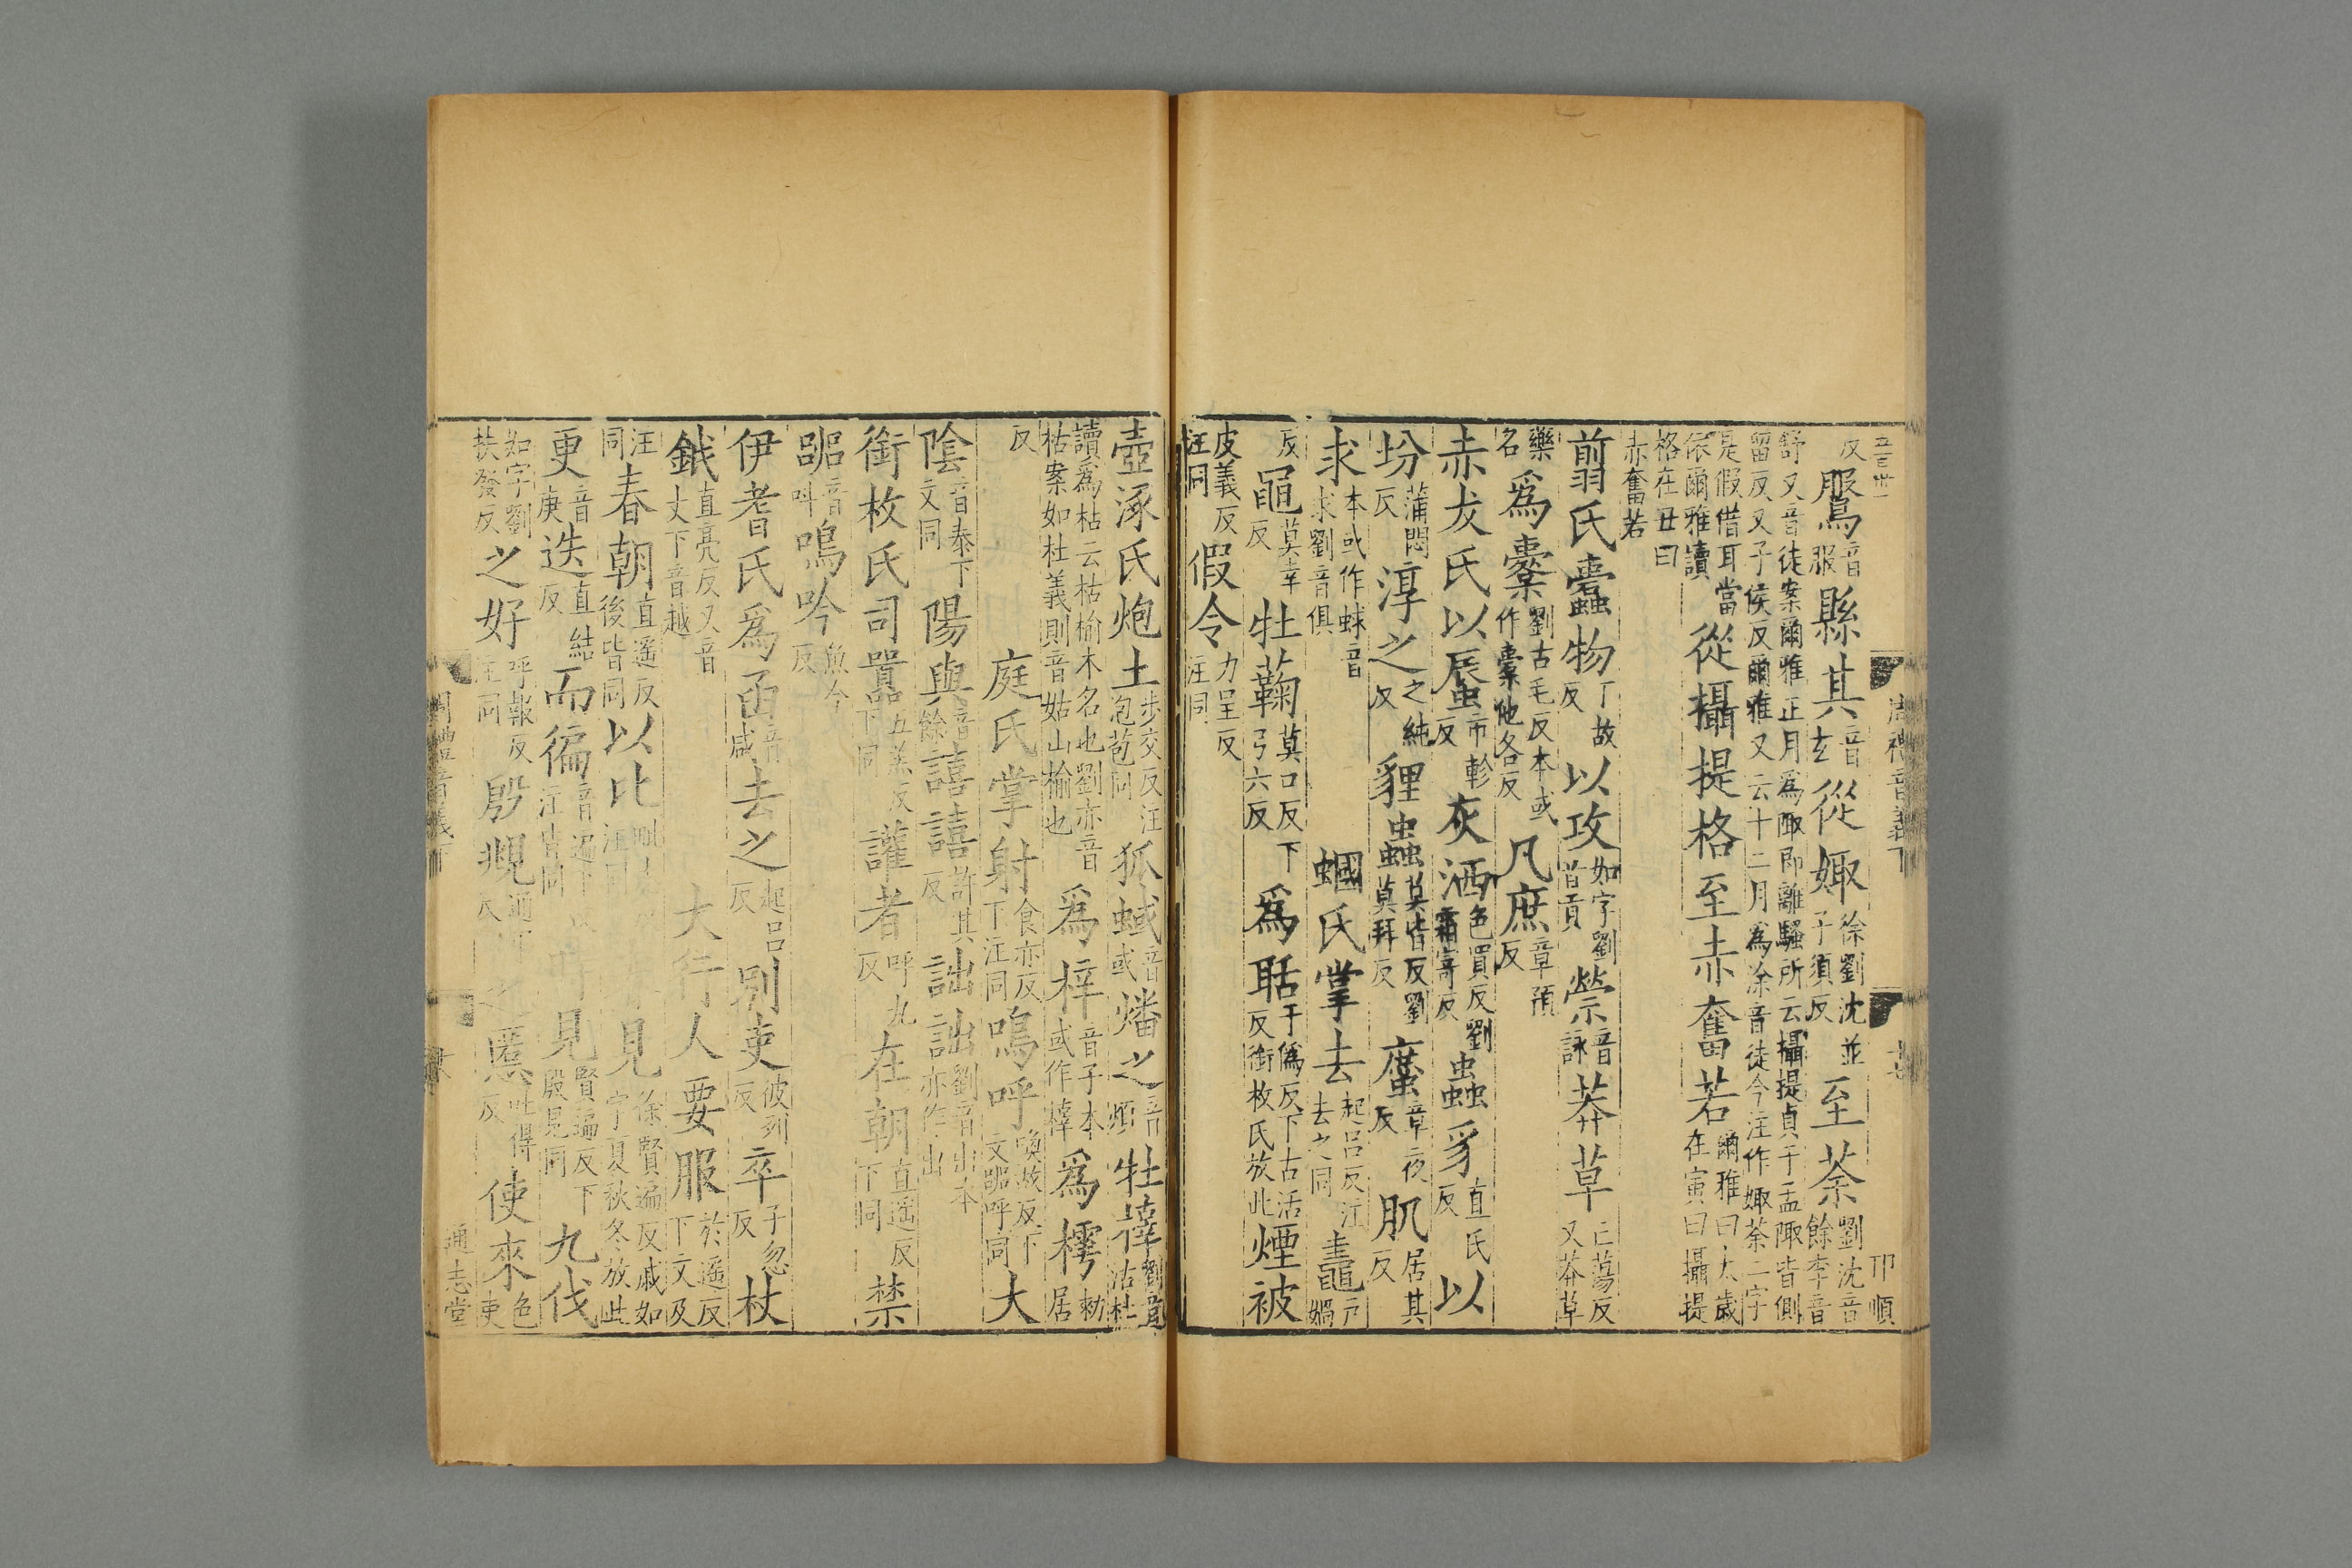 反鵩音服縣其音玄從娵徐劉沈並子須反至荼劉沈音餘李音
舒又音徒案爾雅正月為陬即離騷所云攝提貞于孟陬皆側
留反又子侯反爾雅又云十二月為涂音徒今注作娵荼二字
是假借耳當依爾雅讀從攝提格至赤奮若爾雅曰太歲在寅曰攝提
格在丑曰赤奮若
翦氏蠹物丁故反以攻如字劉音貢禜音詠莽草亡蕩反又莽草
藥名為櫜劉古毛反本或作橐他各反凡庶章預反
赤犮氏以蜃市軫反灰洒色買反劉霜寄反蟲豸直氏反以
坋蒲悶反淳之之純反貍蟲莫皆反劉莫拜反䗪章夜反肌居其反
求本或作蛷音求劉音俱蟈氏掌去起呂反注去之同鼃戶媧
反黽莫幸反牡蘜莫口反下弓六反為聒于偽反下古活反銜枚氏放此煙被
皮義反注同假令力呈反注同
壺涿氏炮土步交反注泡苞同狐蜮音或燔之音煩牡橭劉薧沽杜
讀為枯云枯榆木名也劉亦音枯案如杜義則音姑山榆也為梓音子本或作榟為樗勑居
反庭氏掌射食亦反下注同嗚呼喚故反下文嘂呼同大
陰音泰下文同陽與音餘譆譆許其反詘詘劉音出本亦作出
銜枚氏司囂五羔反下同讙者呼九反在朝直遥反下同禁
嘂音叫嗚吟魚今反
伊耆氏為函音咸去之起呂反別吏彼列反卒子忽反杖
鉞直亮反又音丈下音越大行人要服於遥反下文及
注同春朝直遥反後皆同以比注同見徐賢遍反戚如字夏秋冬放此
更音庚迭直結反而徧音遍下注皆同見賢遍反下殷見同九伐
如字劉扶發反之好呼報反注同殷覜之慝吐得反使來色吏
通志堂